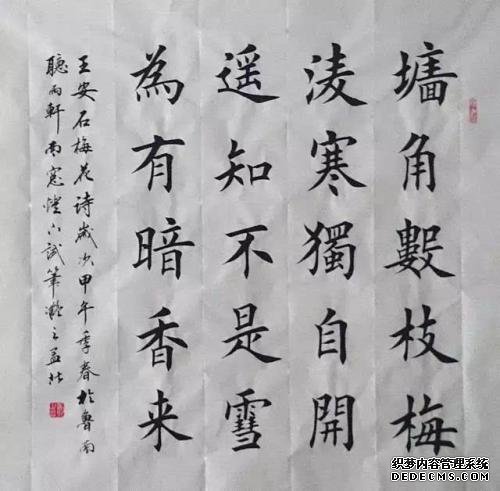 墻角數枝梅
淩寒獨自開
遥知不是雪
為有暗香来
王安石梅花诗歲次甲午季春於魯南
聽雨軒南窓燈下試筆
织梦内容管理系统
DEDECMS.COM